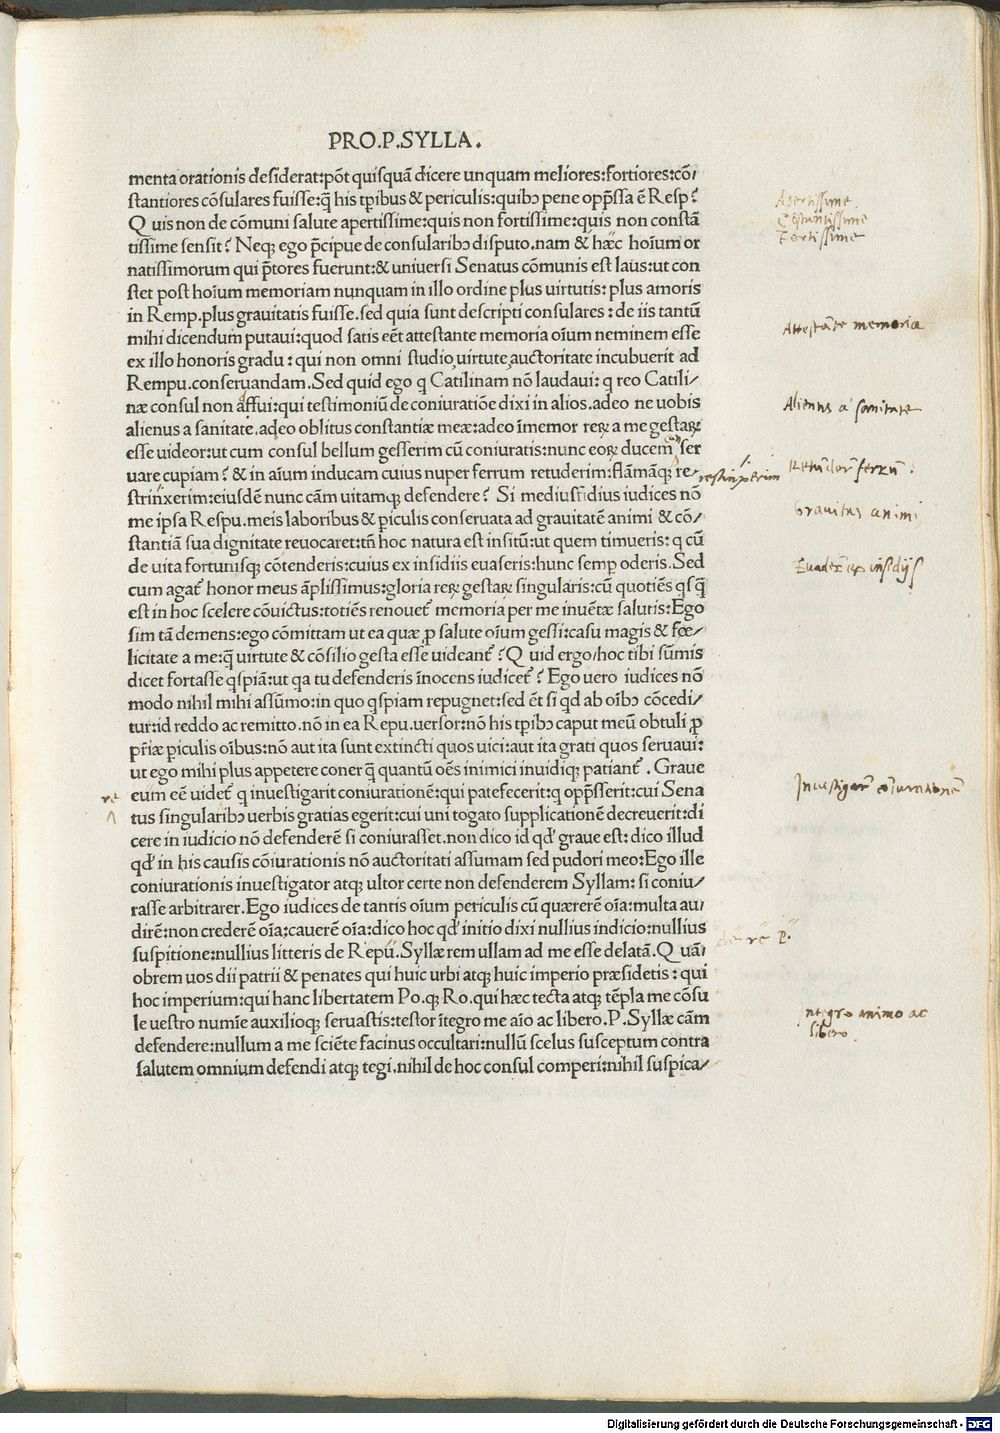 PRO.P.SYLLA.
menta orationis desiderat:põt quisquã dicere unquam meliores:fortiores:cõ/
stantiores cõsulares fuisse:q̃ his tꝑibus & periculis:quibꝫ pene opp̃ssa ẽ Resp?
Quis non de cõmuni salute apertissime:quis non fortissime:quis non constã
tissime sensit? Neqꝫ ego p̃cipue de consularibꝫ disputo.nam & hæc hoĩum or
natissimorum qui p̃tores fuerunt:& uniuersi Senatus cõmunis est laus:ut con
stet post hoĩum memoriam nunquam in illo ordine plus uirtutis: plus amoris
in Remp.plus grauitatis fuisse.sed quia sunt descripti consulares: de iis tantũ
mihi dicendum putaui:quod satis eẽt attestante memoria oĩum neminem esse
ex illo honoris gradu: qui non omni studio,uirtute,auctoritate incubuerit ad
Rempu.conseruandam.Sed quid ego q Catilinam nõ laudaui: q reo Catili/
næ consul non affui:qui testimoniũ de coniuratiõe dixi in alios.adeo ne uobis
alienus a sanitate.adeo oblitus constantiæ meæ:adeo ĩmemor reꝝ a me gestaꝝ
esse uideor:ut cum consul bellum gesserim cũ coniuratis:nunc eoꝝ ducem ser
uare cupiam? & in aĩum inducam cuius nuper ferrum retuderim:flãmãqꝫ re/
strinxerim:eiusdẽ nunc cãm uitamqꝫ defendere? Si mediusfidius iudices nõ
me ipsa Respu.meis laboribus & ꝑiculis conseruata ad grauitatẽ animi & cõ/
stantiã sua dignitate reuocaret:tñ hoc natura est insitũ:ut quem timueris: q cũ
de uita fortunisqꝫ cõtenderis:cuius ex insidiis euaseris:hunc semꝑ oderis.Sed
cum agat̃ honor meus ãplissimus:gloria reꝝ gestaꝝ singularis:cũ quotiẽs qsq̃
est in hoc scelere cõuictus:totiẽs renouet̃ memoria per me inuẽtæ salutis:Ego
sim tã demens:ego cõmittam ut ea quæ ꝓ salute oĩum gessi:casu magis & fœ/
licitate a me:q̃ uirtute & cõsilio gesta esse uideant̃?Quid ergo/hoc tibi sũmis
dicet fortasse qspiã:ut qa tu defenderis ĩnocens iudicet̃? Ego uero iudices nõ
modo nihil mihi assũmo:in quo qspiam repugnet:sed ẽt si qd ab oĩbꝫ cõcedi/
tur:id reddo ac remitto.nõ in ea Repu.uersor:nõ his tꝑibꝫ caput meũ obtuli ꝓ
pr̃iæ ꝑiculis oĩbus:nõ aut ita sunt extincti quos uici:aut ita grati quos seruaui:
ut ego mihi plus appetere coner q̃ quantũ oẽs inimici inuidiqꝫ patiant̃. Graue
eum eẽ uidet̃ q inuestigarit coniurationẽ:qui patefecerit:q opp̃sserit:cui Sena
tus singularibꝫ uerbis gratias egerit:cui uni togato supplicationẽ decreuerit:di
cere in iudicio nõ defenderẽ si coniurasset.non dico id qd' graue est: dico illud
qd' in his causis cõiurationis nõ auctoritati assumam sed pudori meo:Ego ille
coniurationis inuestigator atqꝫ ultor certe non defenderem Syllam: si coniu/
rasse arbitrarer.Ego iudices de tantis oĩum periculis cũ quærerẽ oĩa:multa au/
dirẽ:non crederẽ oĩa:cauerẽ oĩa:dico hoc qd' initio dixi nullius indicio:nullius
suspitione:nullius litteris de Repu.Syllæ rem ullam ad me esse delatã.Quã/
obrem uos dii patrii & penates qui huic urbi atqꝫ huic imperio præsidetis: qui
hoc imperium:qui hanc libertatem Po.qꝫ Ro.qui hæc tecta atqꝫ tẽpla me cõsu
le uestro numĩe auxilioqꝫ seruastis:testor ĩtegro me aĩo ac libero.P.Syllæ cãm
defendere:nullum a me sciẽte facinus occultari:nullũ scelus susceptum contra
salutem omnium defendi atqꝫ tegi.nihil de hoc consul comperi:nihil suspica/
Apertissime.
Cõstantissime
Fortissime
Attestãte memoria
Alienus a sanitate
restinxerim
Retunder̃ ferrũ.
Grauitas animi
Euader̃ ex insidijs
re
Inuestigar̃ cõiurationẽ
Integro animo ac
libero.
Digitalisierung gefördert durch die Deutsche Forschungsgemeinschaft - DFG